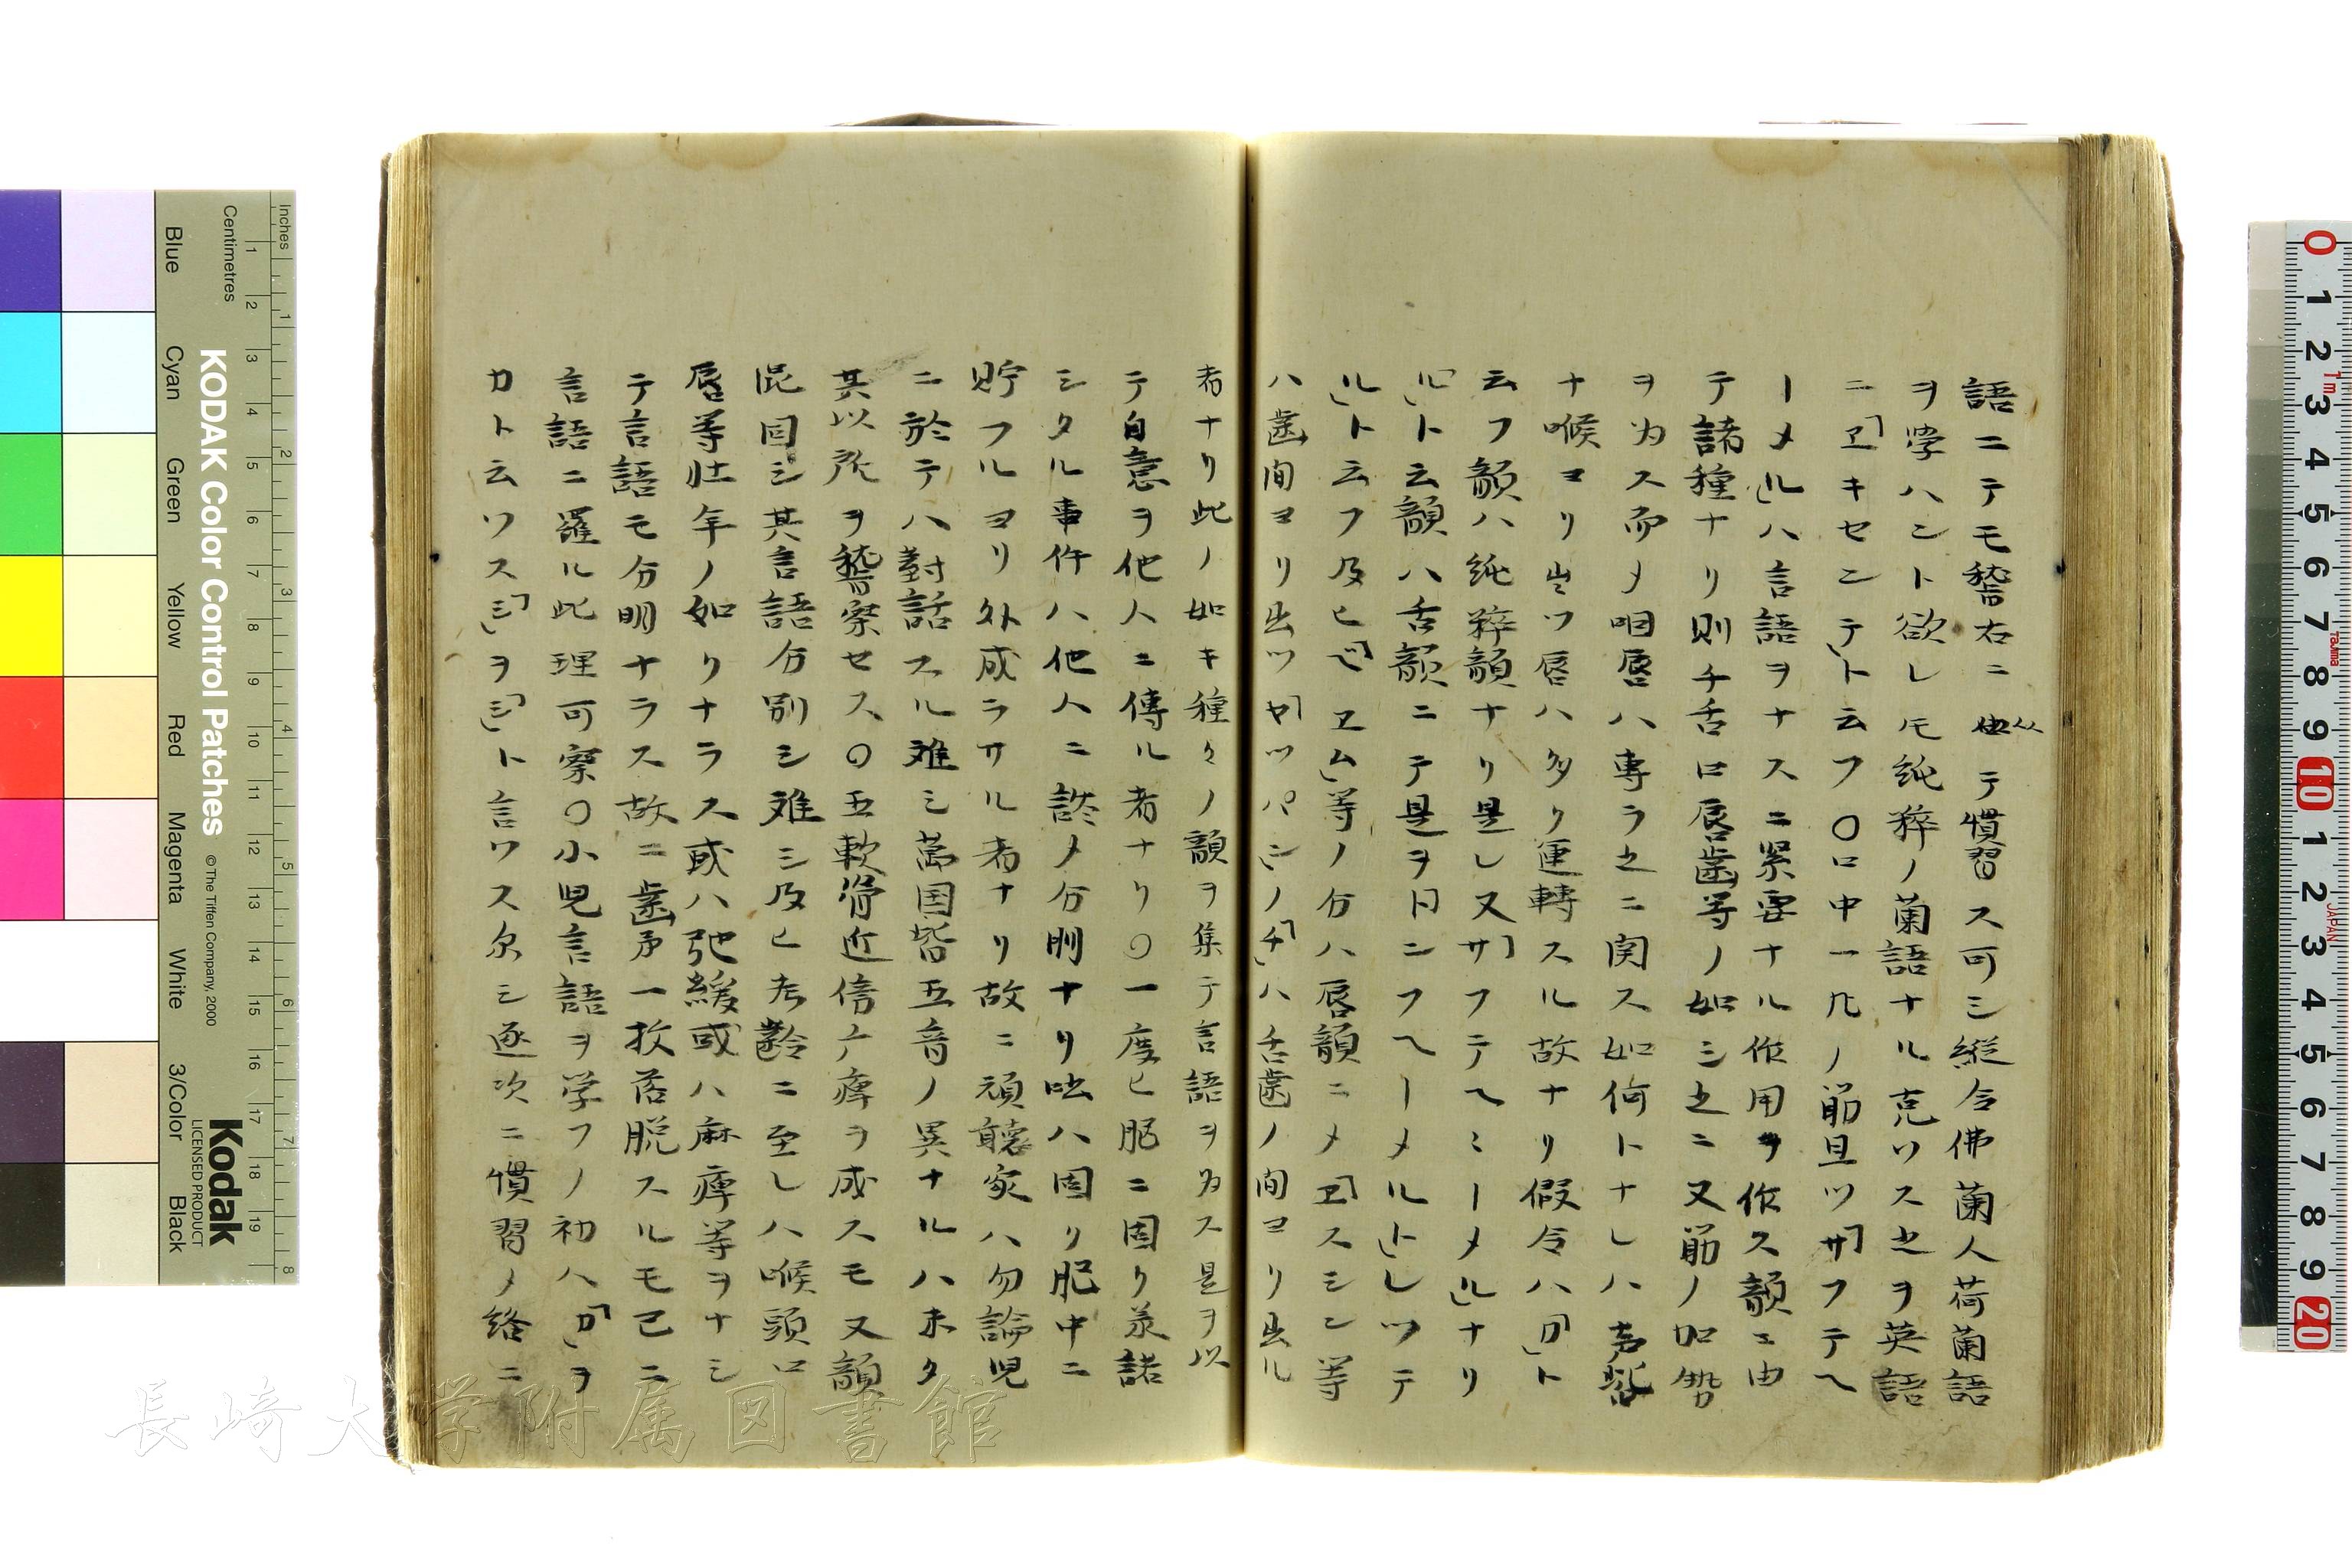 語ニテモ聱右ニ従テ慣習ス可シ縦令佛蘭人荷蘭語
ヲ學ハント欲レモ純粹ノ蘭語ナル克ワス之ヲ英語
ニ「ヱキセンテ」ト云フ〇口中一凡ノ筋且ツ「サフテヘ
ーメル」ハ言語ヲナスニ緊要ナル作用ヲ作ス韻ニ由
テ諸種ナリ則チ舌口唇齒等ノ如シ之ニ又筋ノ加勢
ヲ为ス而メ咽唇ハ専ラ之ニ関ス如何トナレハ声
ナ喉ヨリ出ツ唇ハ多ク運轉スル故ナリ假令ハ「カ」ト
云フ韻ハ純粹韻ナリ是レ又「サフテヘミーメル」ナリ
「ル」ト云韻ハ舌韻ニテ是ヲ日ンフヘーメルト」レツテ
ル」ト云フ及ヒ「ベヱム」等ノ分ハ唇韻ニメ「ヱスシン等
ハ齒间ヨリ出ツ「ヤツパン」ノ「チ」ハ舌齒ノ间ヨリ出ル
者ナリ此ノ如キ種々ノ韻ヲ集テ言語ヲ为ス是ヲ以
テ自意ヲ他人ニ傳ル者ナリ〇一度ヒ脳ニ固リ羕諾
シタル事件ハ他人ニ談メ分明ナリ咄ハ固リ肥中ニ
貯フルヨリ外成ラサル者ナリ故ニ頑聴家ハ勿論児
ニ於テハ對話スル难シ萬国皆五音ノ異ナルハ未タ
其以所ヲ聱察セス〇五軟滑近倍亡痺ヲ成スモ又韻
混同シ其言語分別シ难シ及ヒ老齡ニ至レハ喉頭口
唇等壮年ノ如クナラス或ハ弛緩或ハ麻痺等ヲナシ
テ言語モ分明ナラス故ニ齒㐧一枚落脱スルモ已ニ
言語ニ羅ル此理可察〇小児言語ヲ学フノ初ハ「カ」ヲ
カト云ワス「シ」ヲ「シ」ト言ワス尓シ逐次ニ慣習メ絡ニ
Inches
Centimetres
KODAK Color Control Patches
© The Tiffen Company, 2000
Kodak
LICENSED PRODUCT
Blue
Cyan
Green
Yellow
Red
Magenta
White
3/Color
Black
長崎大学附属図書館